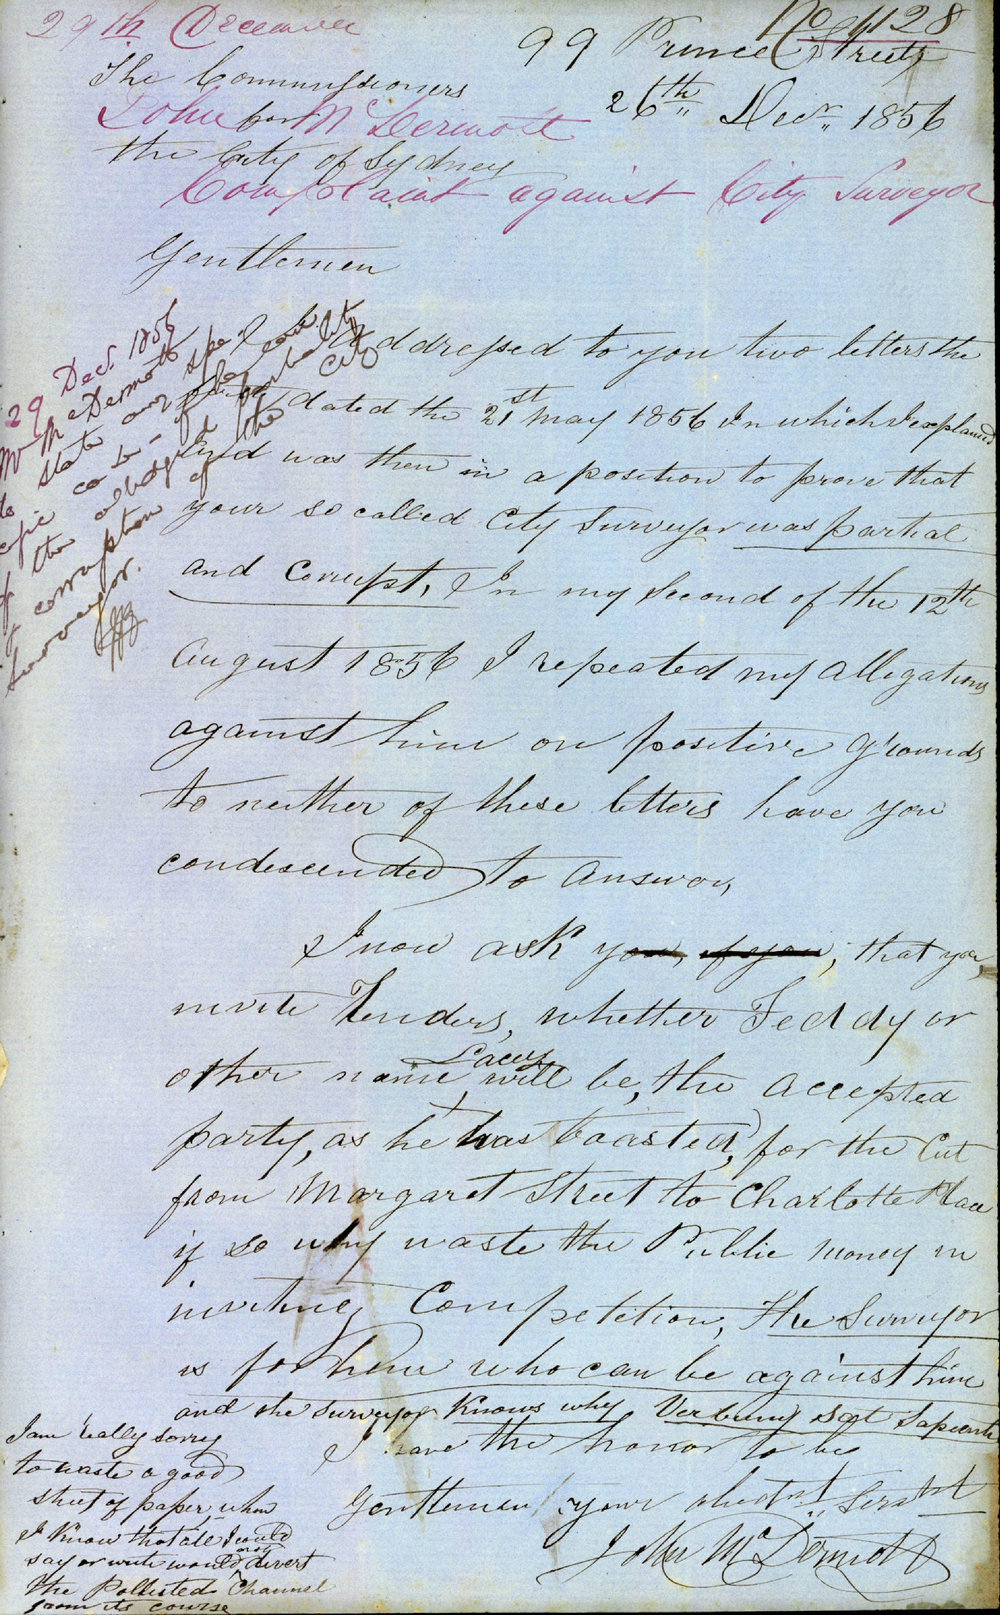 29th December
No 1128
99 Prince Street
The Commissioners
26th Decr. 1856
John McDermott
for
the City of Sydney
Complaint against City Surveyor
Gentlemen
I addressed to you two letters the
dated the 21st May 1856 In which I explained
and was then in a position to prove that
your so called City Surveyor was partial
and corrupt, In my second of the 12th
August 1856 I repeated my allegations
against him on positive grounds
to neither of these letters have you
condescended to answer,
I now ask you, if you, that you,
invite Tenders, whether Teddy or
other name Lacey will be, the accepted
party, as he has boasted, for the Cut
from Margaret Street to Charlotte Place
if so why waste the Public money in
inviting Competition, the Surveyor
is for him who can be against him
and the surveyor Knows why Verbum sat Sapienti
I have the honor to be
Gentlemen your obedt Servt
John McDermott
29 Decr 1856
Mr McDermott
to state any spe-
cific case
of the alledged partiality
& corruption of the City
Surveyor.
I am really sorry
to waste a good
sheet of paper, when
I Know that all I could
say or write would not divert
the Polluted Channel
from its course